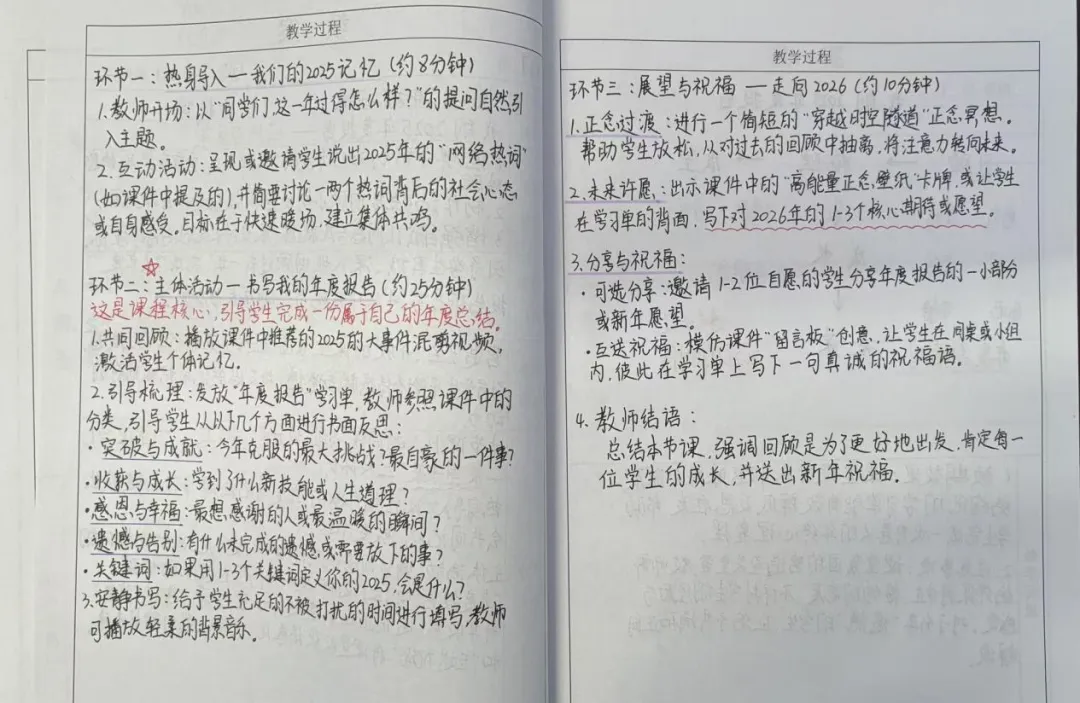 教学过程
环节一：热身导入—我们的2025记忆（约8分钟）
1.教师开场：以“同学们，这一年过得怎么样？”的提问自然引
入主题。
2.互动活动：呈现或邀请学生说出2025年的“网络热词”
（如课件中提及的），并简要讨论一两个热词背后的社会心态
或自身感受。目标在于快速暖场，建立集体共鸣。
环节二：主体活动—书写我的年度报告（约25分钟）
这是课程核心，引导学生完成一份属于自己的年度总结。
1.共同回顾：播放课件中推荐的2025的大事件混剪视频，
激活学生个体记忆。
2.引导梳理：发放“年度报告”学习单，教师参照课件中的
分类，引导学生从以下几个方面进行书面反思：
·突破与成就：今年克服的最大挑战？最自豪的一件事？
·收获与成长：学到了什么新技能或人生道理？
·感恩与幸福：最想感谢的人或最温暖的瞬间？
·遗憾与告别：有什么未完成的遗憾或需要放下的事？
·关键词：如果用1-3个关键词定义你的2025，会是什么？
3.安静书写：给予学生充足的不被打扰的时间进行填写，教师
可播放轻柔的背景音乐。
教学过程
环节三：展望与祝福—走向2026（约10分钟）
1.正念过渡：进行一个简短的“穿越时空隧道”正念冥想。
帮助学生放松，从对过去的回顾中抽离，将注意力转向未来。
2.未来许愿：出示课件中的“高能量正念壁纸”卡牌，或让学生
在学习单的背面，写下对2026年的1-3个核心期待或愿望。
3.分享与祝福：
·可选分享：邀请1-2位自愿的学生分享年度报告的一小部分
或新年愿望。
·互送祝福：模仿课件“留言板”创意，让学生在同桌或小组
内，彼此在学习单上写下一句真诚的祝福语。
4.教师结语：
总结本节课，强调回顾是为了更好地出发，肯定每一
位学生的成长，并送出新年祝福。